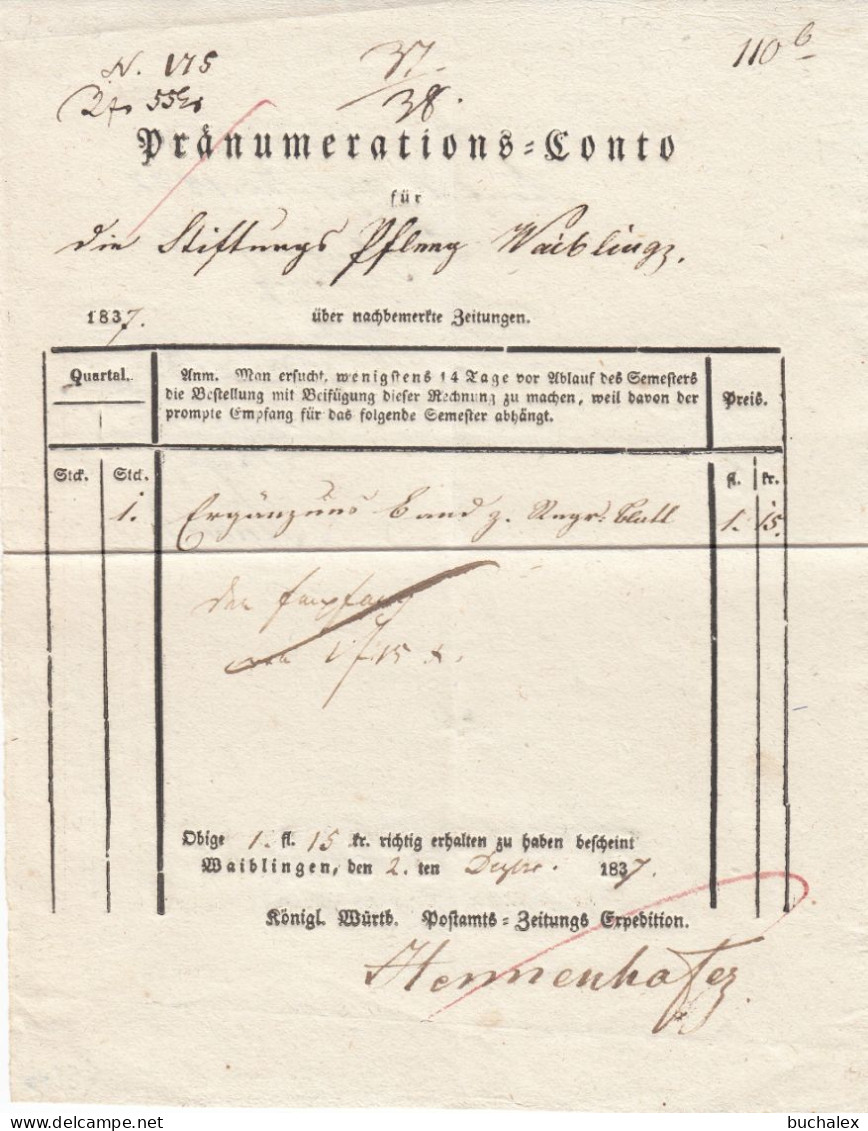 N. 175 37 110 b
38.
Pränumerations=Conto
für
die Stiftungs Pfleeg Waiblingen.
1837. über nachbemerkte Zeitungen.
Quartal. Anm. Man ersucht, wenigstens 14 Tage vor Ablauf des Semesters
die Bestellung mit Beifügung dieser Rechnung zu machen, weil davon der Preis.
prompte Empfang für das folgende Semester abhängt.
Stck. Stck. fl. kr.
1. Ergänzuns Band z. Regs. Blatt 1. 15.
den Empfang
1 f. 15 x.
Obige 1. fl. 15 kr. richtig erhalten zu haben bescheint
Waiblingen, den 2. ten Dezbr. 1837.
Königl. Würtb. Postamts=Zeitungs Expedition.
Hennenhofer
buchalex